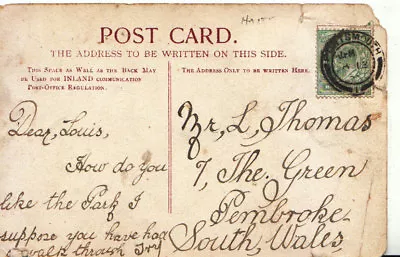 POST CARD.
THE ADDRESS TO BE WRITTEN ON THIS SIDE.
THIS SPACE AS WELL AS THE BACK MAY
BE USED FOR INLAND COMMUNICATION
POST-OFFICE REGULATION.
THE ADDRESS ONLY TO BE WRITTEN HERE.
Dear, Louis,
How do you
like the Park I
suppose you have had
a walk through
Mr, L, Thomas
7, The. Green
Pembroke
South, Wales